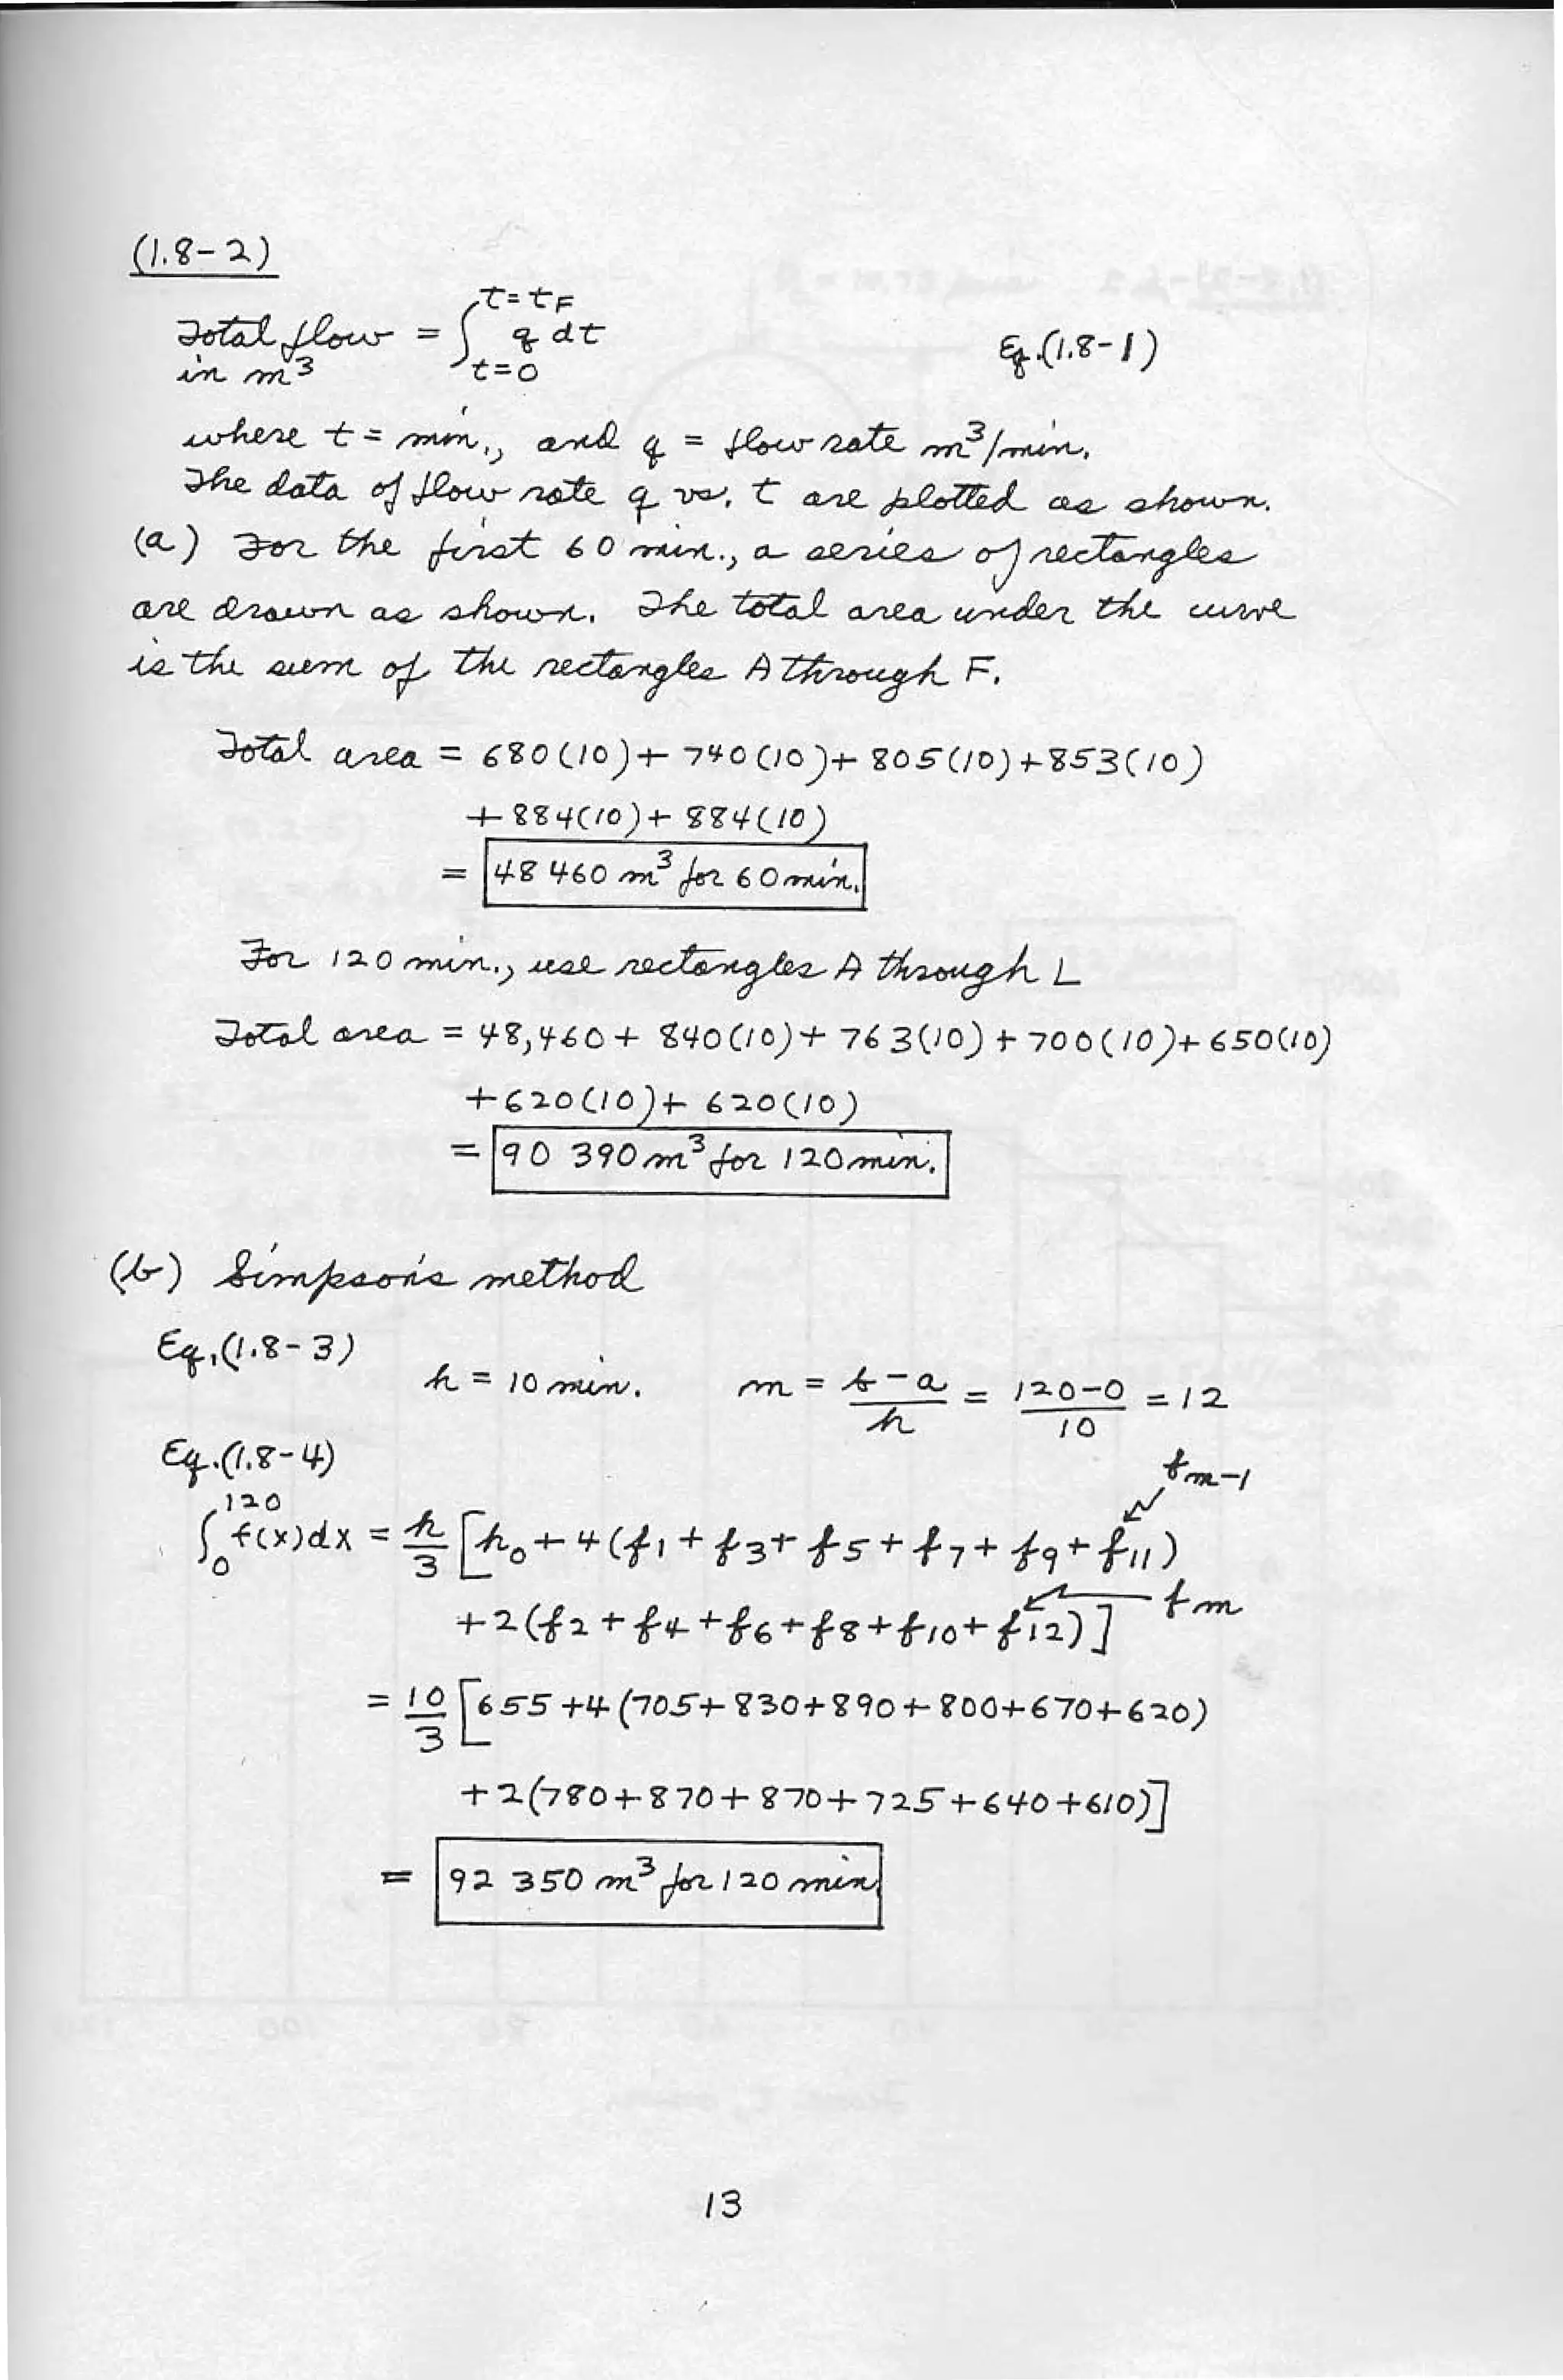 (1.8-2)
Total flow = ∫ t=t_F q dt Eq.(1.8-1)
in m³ t=0
where t = min., and q = flow rate m³/min.
The data of flow rate q vs. t are plotted as shown.
(a) For the first 60 min., a series of rectangles
are drawn as shown. The total area under the curve
is the sum of the rectangles A through F.
Total area = 680(10)+ 740(10)+ 805(10)+853(10)
+ 884(10)+ 884(10)
= 48 460 m³ for 60 min.
For 120 min., use rectangles A through L
Total area = 48,460 + 840(10)+ 763(10) + 700(10)+ 650(10)
+620(10)+ 620(10)
= 90 390 m³ for 120 min.
(b) Simpson's method
Eq.(1.8-3)
h = 10 min. m = b-a/h = 120-0/10 = 12
Eq.(1.8-4)
f_m-1
∫₀¹²⁰ f(x)dx = h/3 [h₀ + 4(f₁ + f₃ + f₅ + f₇ + f₉ + f₁₁)
+2(f₂ + f₄ + f₆ + f₈ + f₁₀ + f₁₂)] f_m
= 10/3 [655 +4(705+ 830+890+800+670+620)
+2(780+870+870+725+640+610)]
= 92 350 m³ for 120 min
13